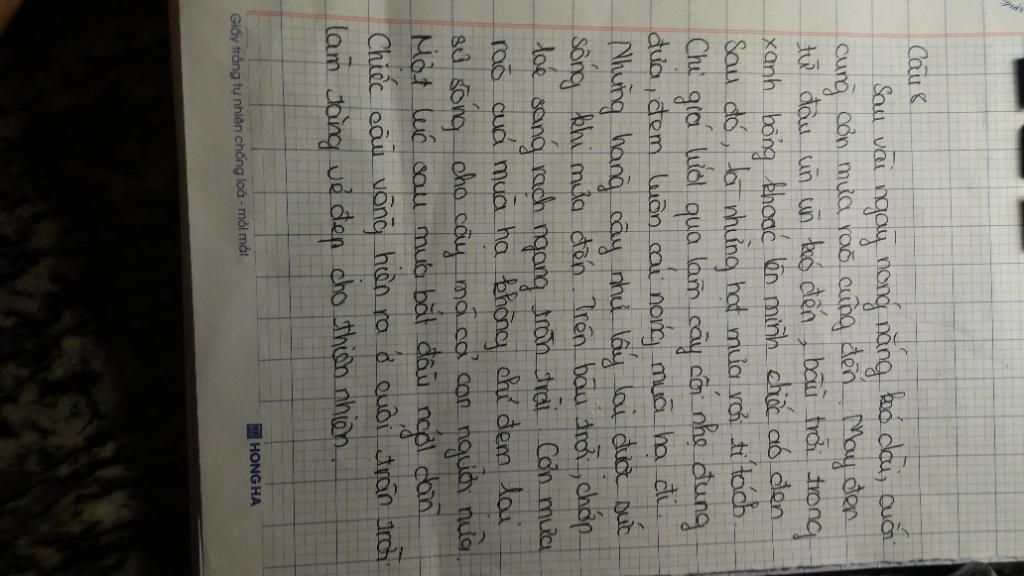 Câu 8
Sau vài ngày nóng nắng kéo dài, cuối
cùng cơn mưa rào cũng đến. Mây đen
từ đâu ùn ùn kéo đến, bầu trời trong
xanh bỗng khoác lên mình chiếc áo đen
Sau đó, là những hạt mưa rơi tí tách.
Chị gió lướt qua làm cây cối nhẹ đung
đưa, đem luôn cái nóng mùa hạ đi.
Những hàng cây như lấy lại được sức
sống khi mưa đến. Trên bầu trời, chớp
loé sáng rạch ngang trần trời. Cơn mưa
rào quả mùa hạ không chỉ đem lại
sự sống cho cây mà cả con người nữa.
Một lúc sau mưa bắt đầu ngớt dần
Chiếc cầu vồng hiện ra ở cuối trần trời
làm tăng vẻ đẹp cho thiên nhiên.
Giấy trắng tự nhiên chống loá - mỏi mắt
HONG HA